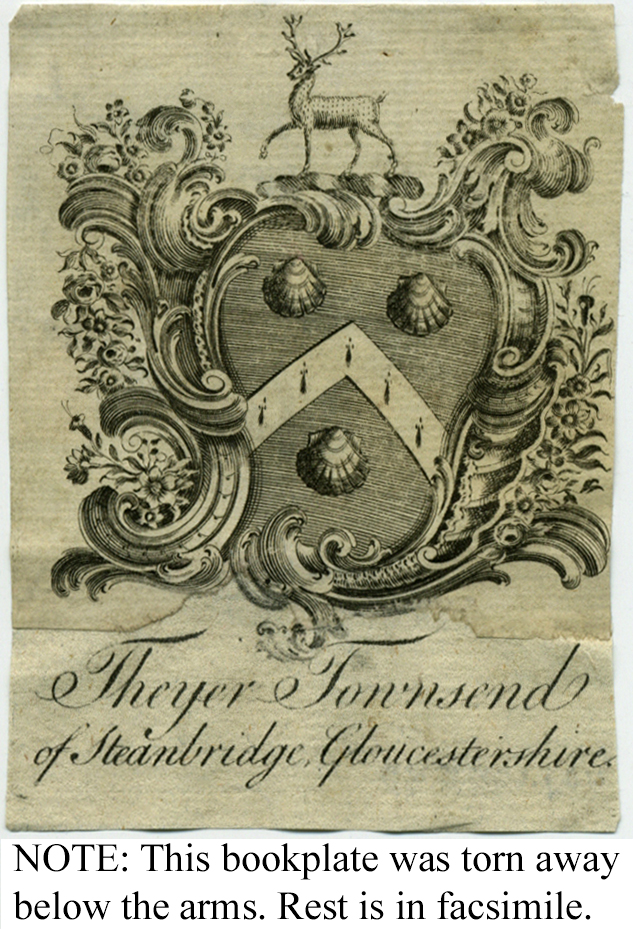 Theyer Townsend
of Steanbridge, Gloucestershire.
NOTE: This bookplate was torn away
below the arms. Rest is in facsimile.